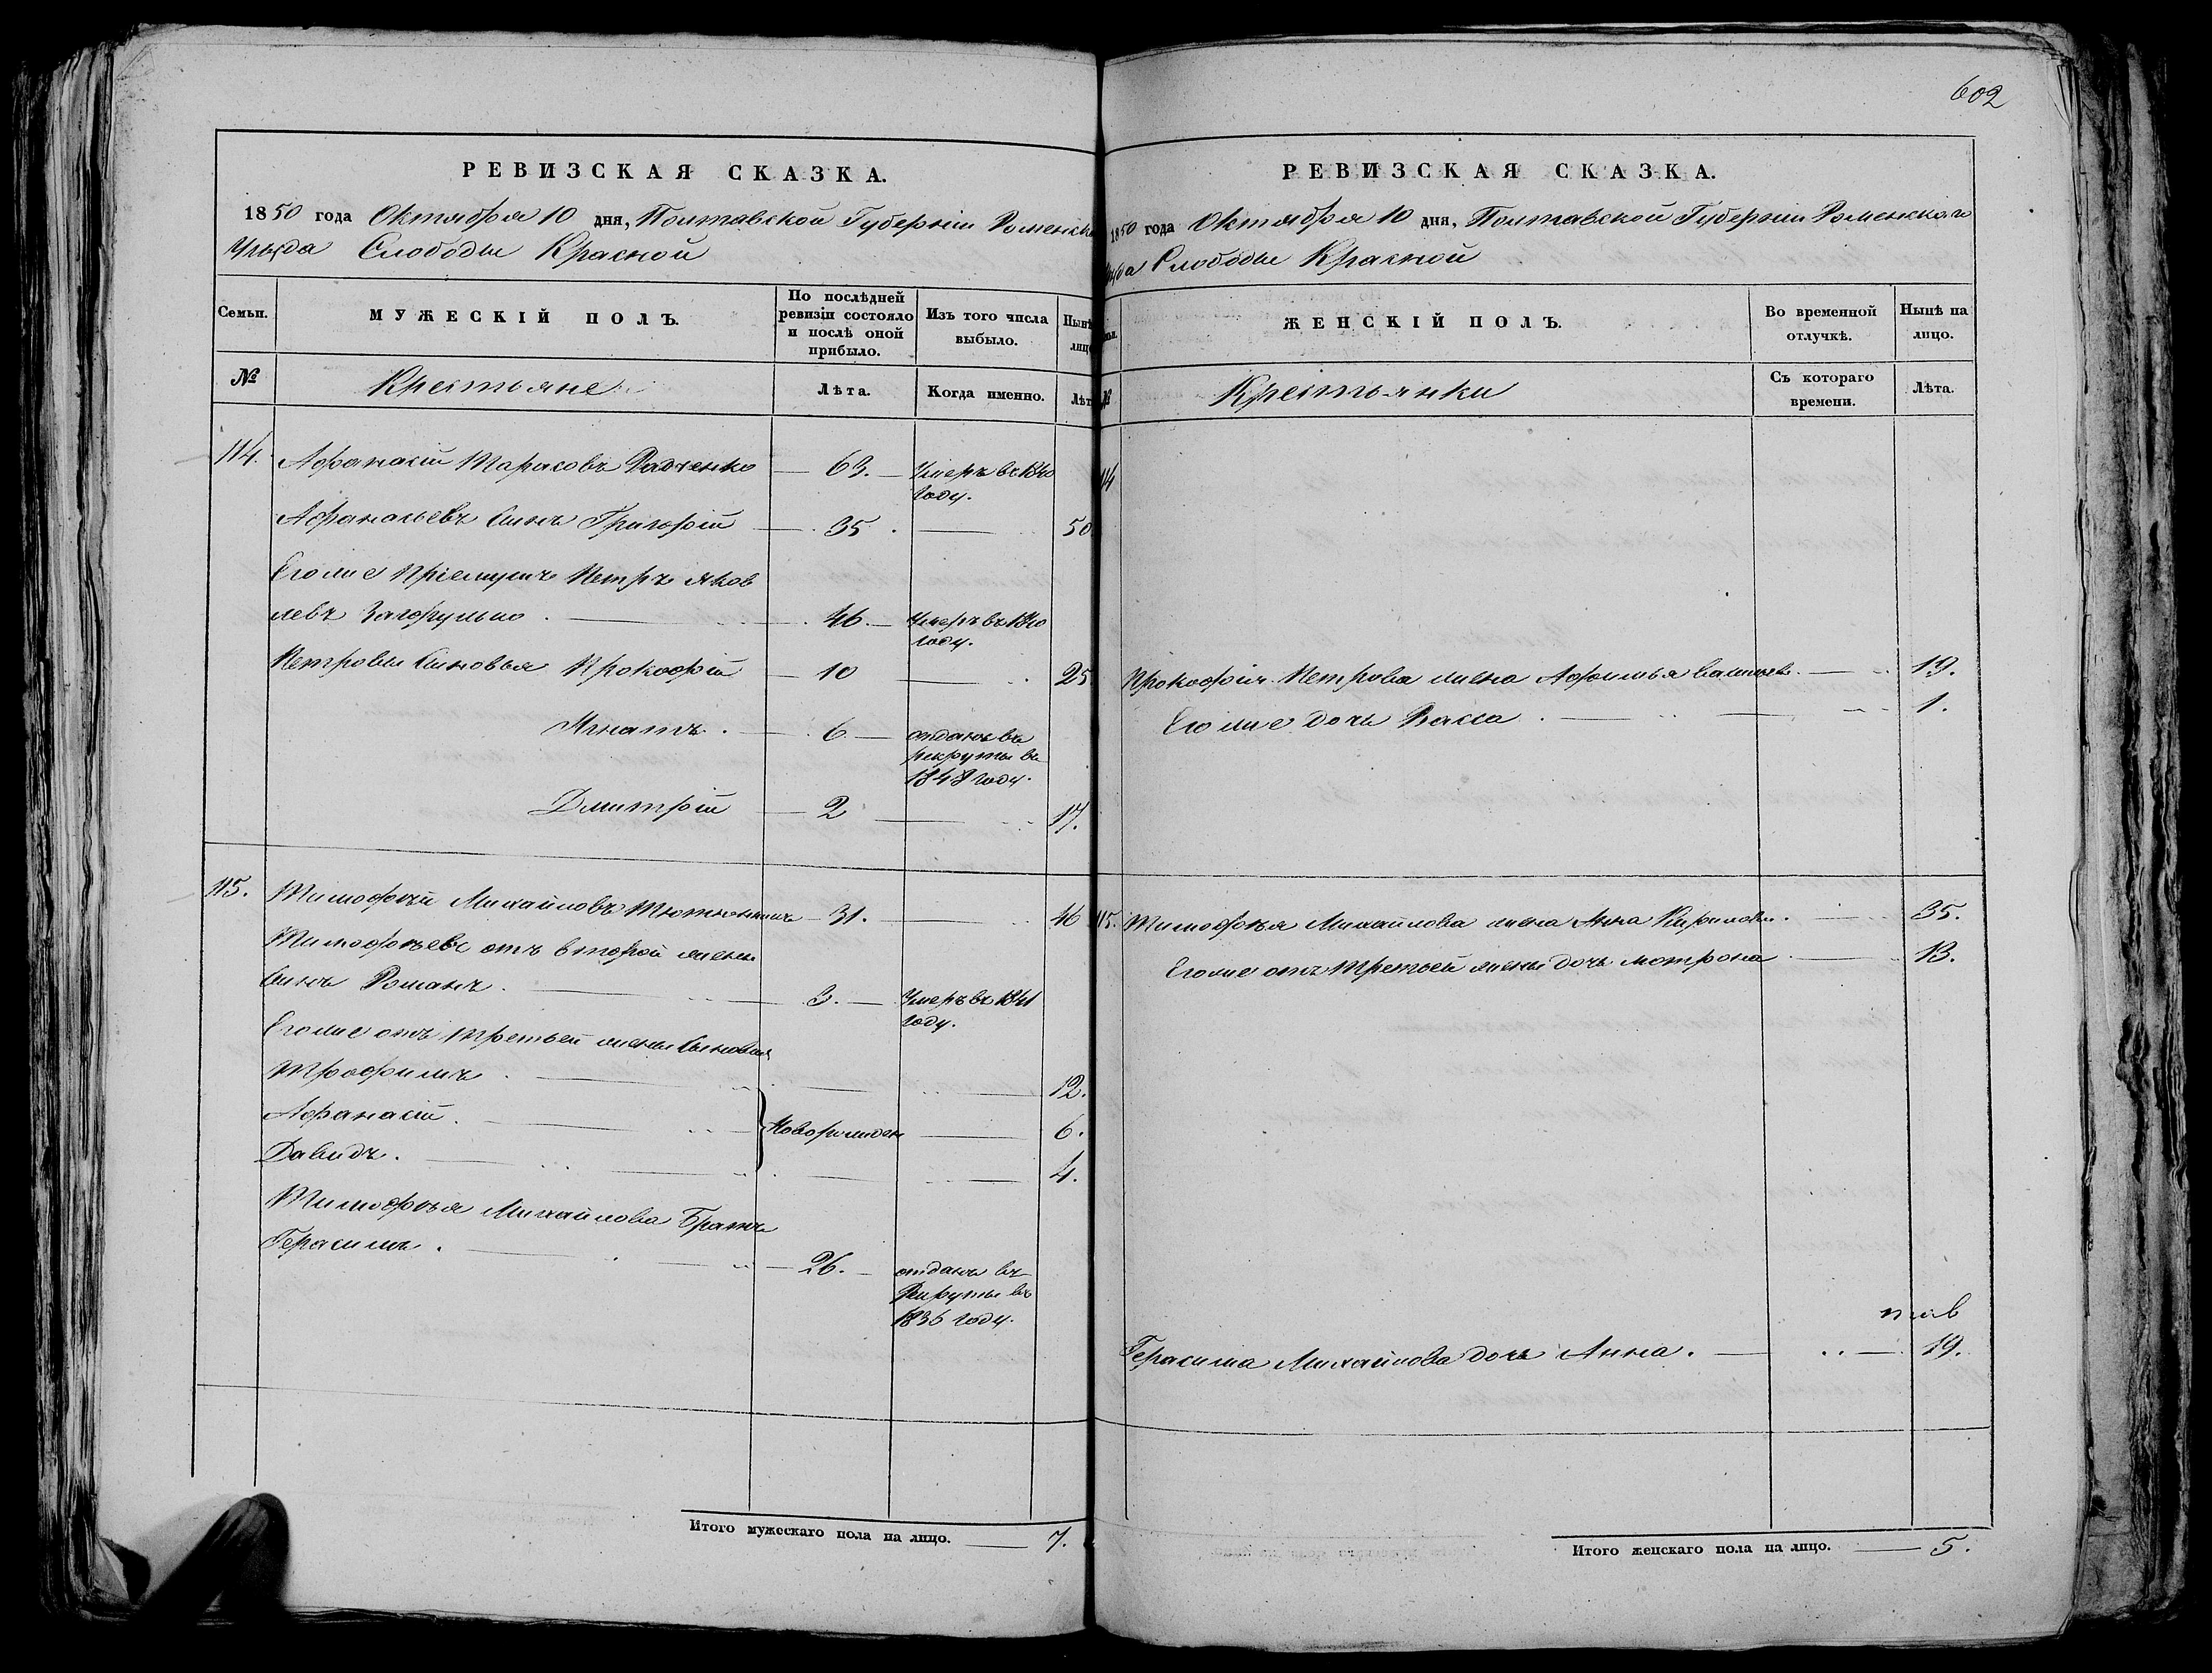 602
РЕВИЗСКАЯ СКАЗКА.
1850 года Октября 10 дня, Полтавской Губерніи Роменск
Уѣзда Слободы Красной
Семьи.
МУЖЕСКІЙ ПОЛЪ.
По послѣдней ревизіи состояло и послѣ оной прибыло.
Изъ того числа выбыло.
Нынѣ лицо
№
Крестьяне
Лѣта.
Когда именно.
Лѣт
114. Афанасій Тарасовъ Радченко — 63. — Умеръ въ 1840
году.
Афанасьевъ Сынъ Григорій — 35. — 50
Егоже Пріемышъ Петръ Яков
левъ Загорулько — 46. — Умеръ въ 1840
году.
Петровы Сыновья Прокофій — 10 — 25
Игнатъ. — 6 — отданъ въ
рекруты въ
1848 году.
Дмитрій — 2 — 17.
115. Тимофѣй Михайловъ Тютюнникъ — 31. — 46
Тимофѣевъ отъ второй жены
Сынъ Романъ. — 3. — Умеръ въ 1841
году.
Егоже отъ третьей жены Сыновья
Трофимъ — 12.
Афанасій. — Новорожден — 6.
Давидъ. — 4.
Тимофѣя Михайлова Братъ
Герасимъ. — 26. — отданъ въ
Рекруты въ
1836 году.
Итого мужескаго пола на лицо. — 7.
РЕВИЗСКАЯ СКАЗКА.
1850 года Октября 10 дня, Полтавской Губерніи Роменскаго
Слободы Красной
ЖЕНСКІЙ ПОЛЪ.
Во временной отлучкѣ.
Нынѣ на лицо.
№
Крестьянки
Съ котораго времени.
Лѣта.
114
Прокофія Петрова жена Афимья — 19.
Егоже дочь Васса — 1.
115. Тимофѣя Михайлова жена Анна Кирилова. — 35.
Егоже отъ третьей жены дочь Мотрона — 13.
Герасима Михайлова дочь Анна. — 19.
Итого женскаго пола на лицо. — 5.